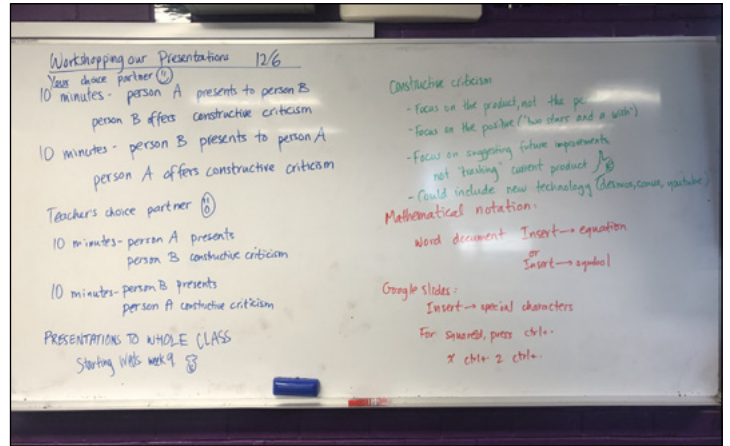 Workshopping our Presentations 12/6
Your choice partner
10 minutes - person A presents to person B
person B offers constructive criticism
10 minutes - person B presents to person A
person A offers constructive criticism
Teacher's choice partner
10 minutes - person A presents
person B constructive criticism
10 minutes - person B presents
person A constuctive criticism
PRESENTATIONS TO WHOLE CLASS
Starting week 9
Constructive criticism
- Focus on the product, not the
- Focus on the positive ("two stars and a wish")
- Focus on suggesting future improvements
not "trashing" current product
- Could include new technology (desmos, canva, youtube)
Mathematical notation:
Word document Insert → equation
or
Insert → symbol
Google slides:
Insert → special characters
For squared, press ctrl+.
x ctrl+. 2 ctrl+.